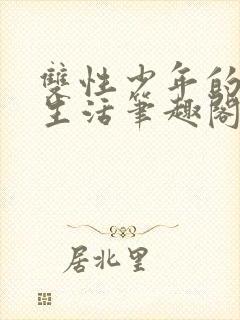 雙性少年的
生活筆趣閣
居北里